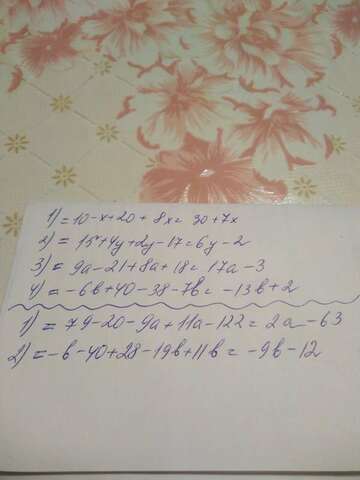 1) = 10-x+20+8x= 30+7x
2) = 15+4y+2y-17=6y-2
3) = 9a-21+8a+18=17a-3
4) = -6b+40-38-7b= -13b+2
1) = 79-20-9a+11a-122=2a-63
2) = -b-40+28-19b+11b= -9b-12